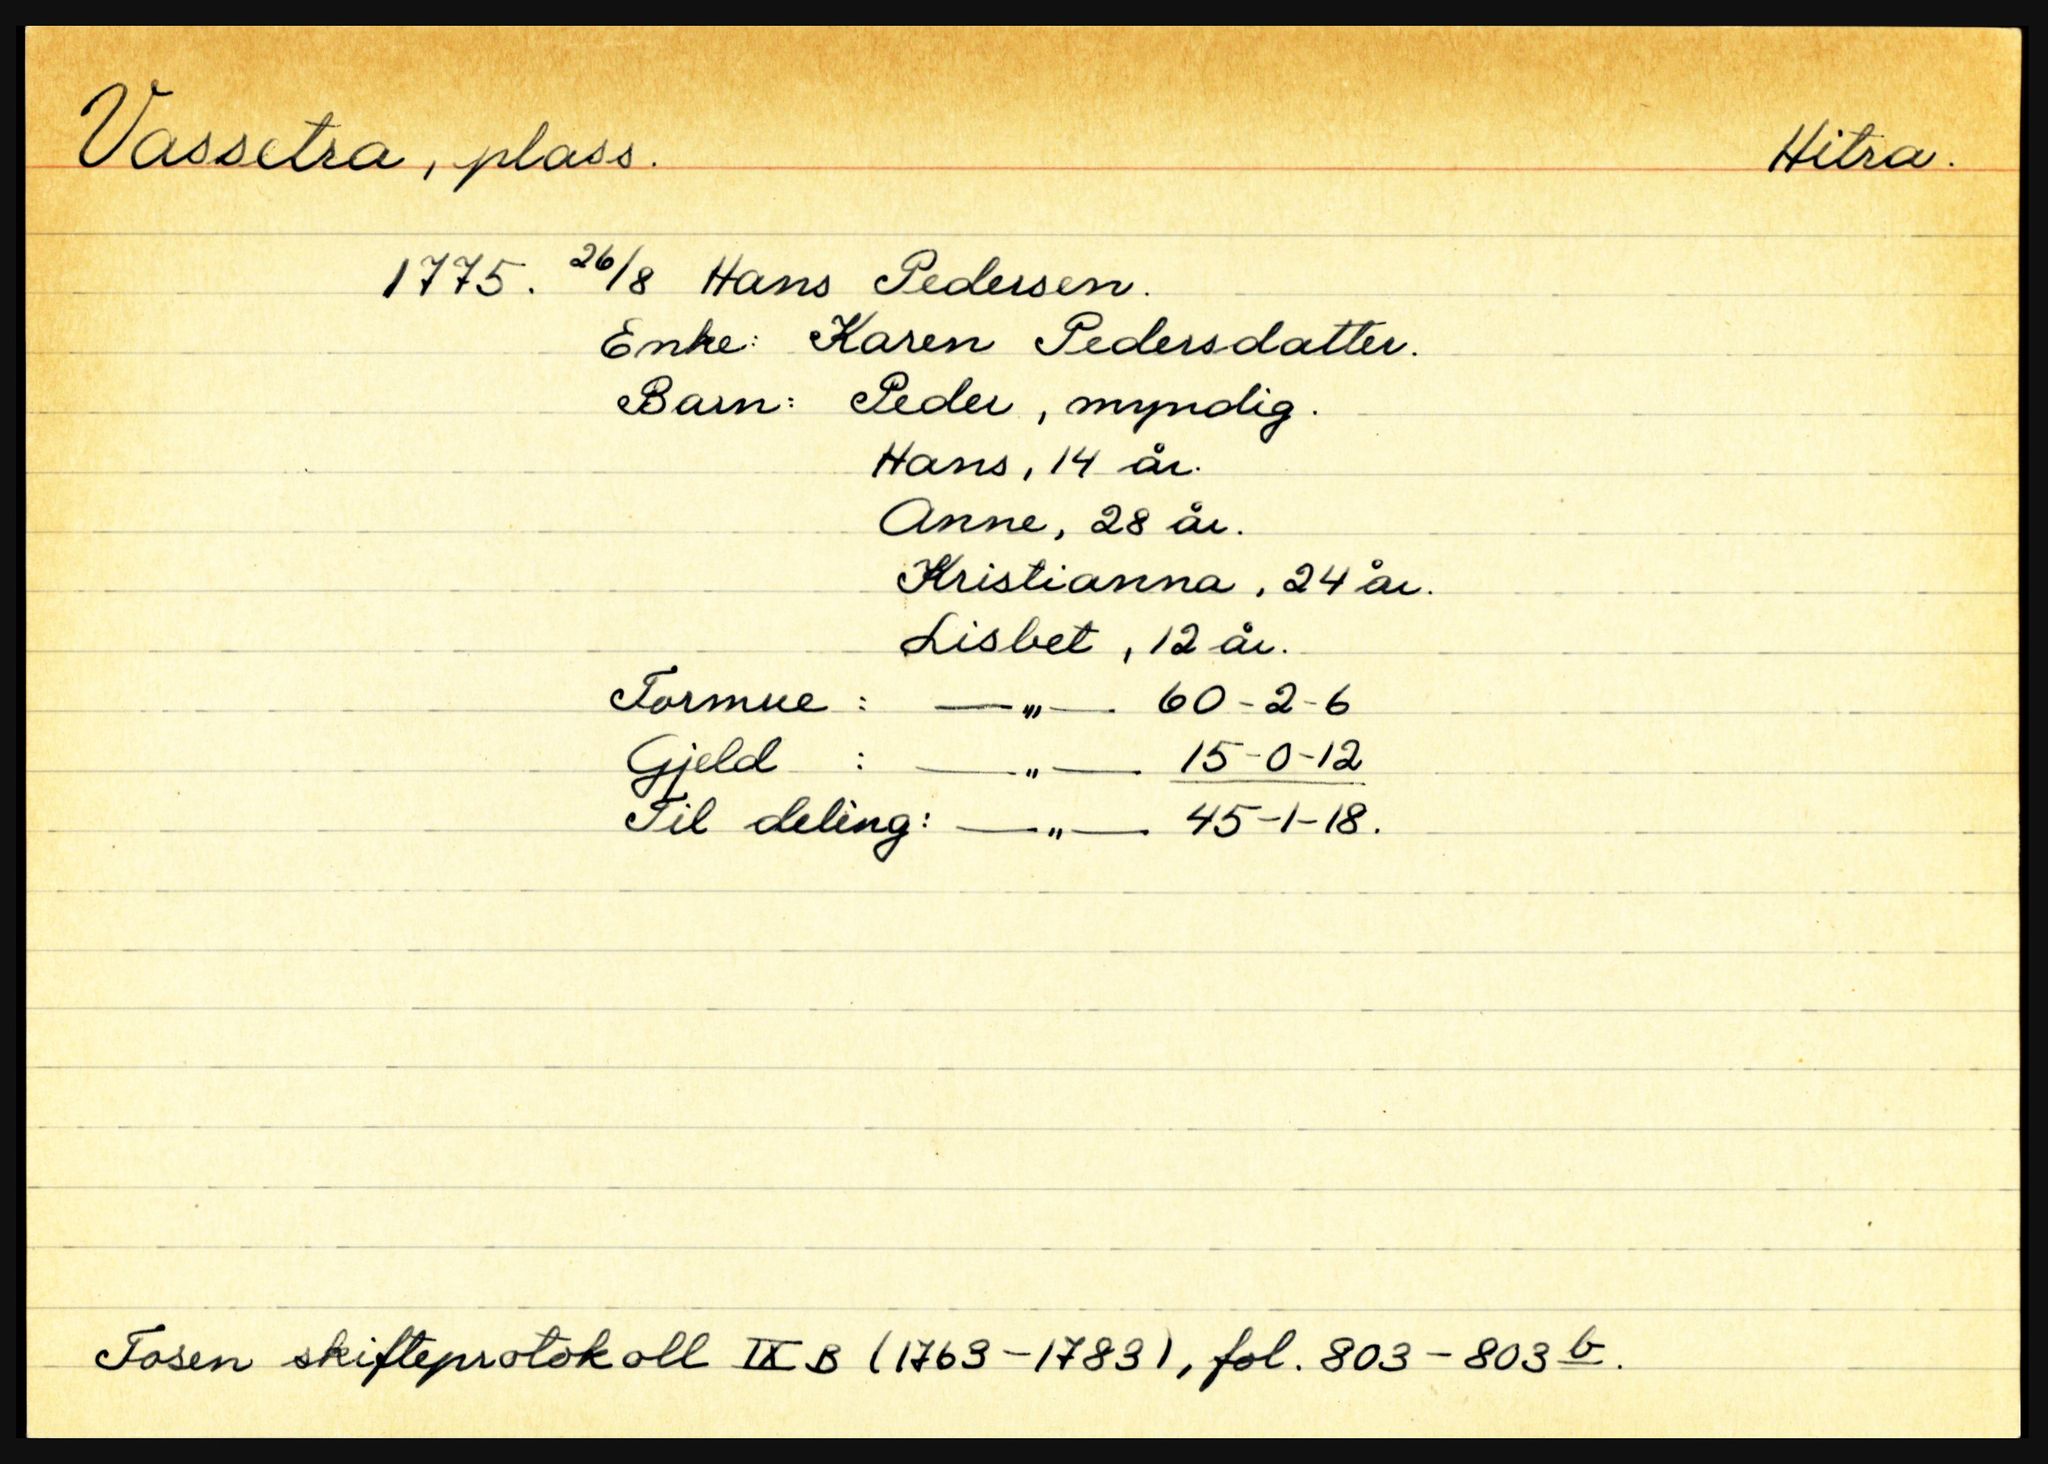 Vassetra, plass. Hitra.
1775. 26/8 Hans Pedersen.
Enke: Karen Pedersdatter.
Barn: Peder, myndig.
Hans, 14 år.
Anne, 28 år.
Kristianna, 24 år.
Lisbet, 12 år.
Formue : —„— 60-2-6
Gjeld : —„— 15-0-12
Til deling: —„— 45-1-18.
Fosen skifteprotokoll IX B (1763-1783), fol. 803-803 b.